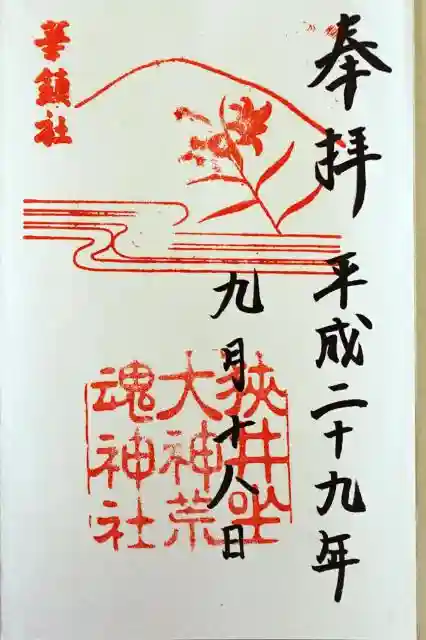 奉拝 平成二十九年
九月十八日
華鎮社
狭井坐
大神荒
魂神社